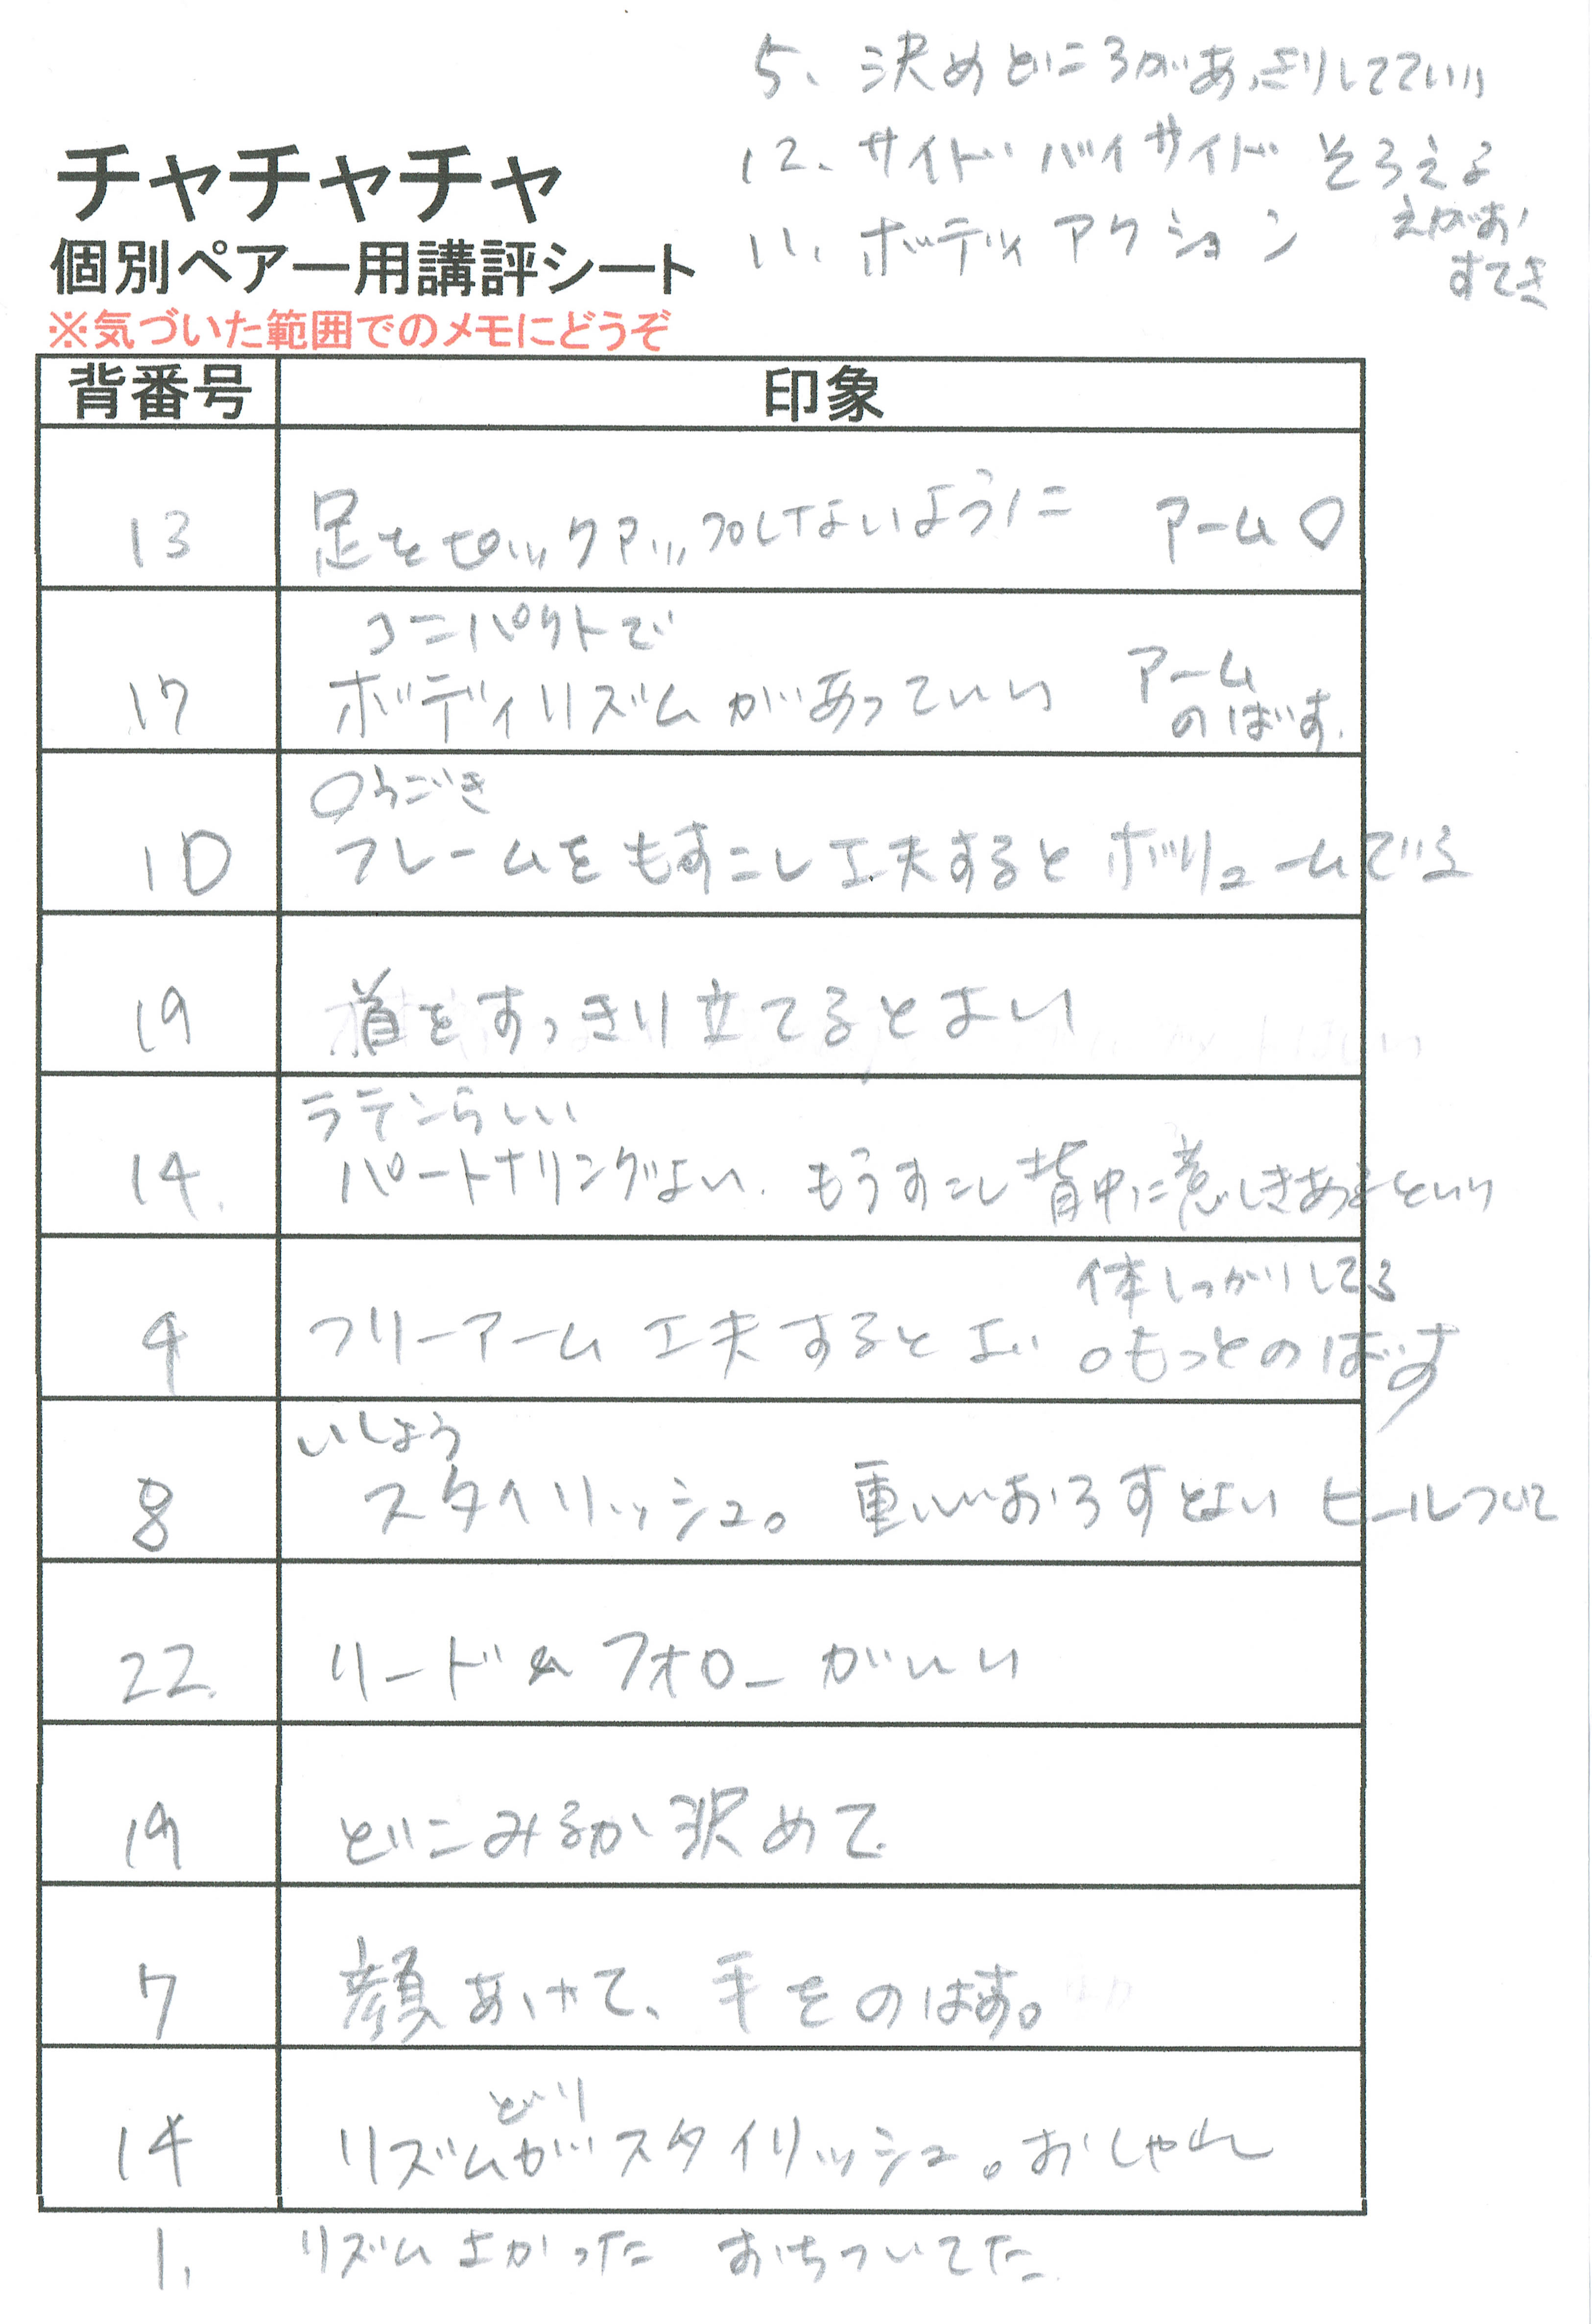 5、決めどころがあっさりしてていい
12、サイドバイサイド そろえる
11、ボディアクション えがお
すてき
チャチャチャ
個別ペアー用講評シート
※気づいた範囲でのメモにどうぞ
背番号 印象
13 足をピックアップしないように アーム○
コンパクトで
17 ボディリズムがあっていい アーム
のばす.
○うごき
10 フレームをもすこし工夫するとボリュームでる
19 首をすっきり立てるとよい
ラテンらしい
14. パートナリングよい. もうすこし背中に意しきあるといい
体しっかりしてる
4 フリーアーム工夫するとよい ○もっとのばす
いしょう
8 スタイリッシュ。重心おろすとよい ヒールついて
22. リード&フォローがいい
19 どこみるか決めて
7 顔あげて、手をのばす。
どり
14 リズムがスタイリッシュ。おしゃれ
1. リズムよかった おちついてた